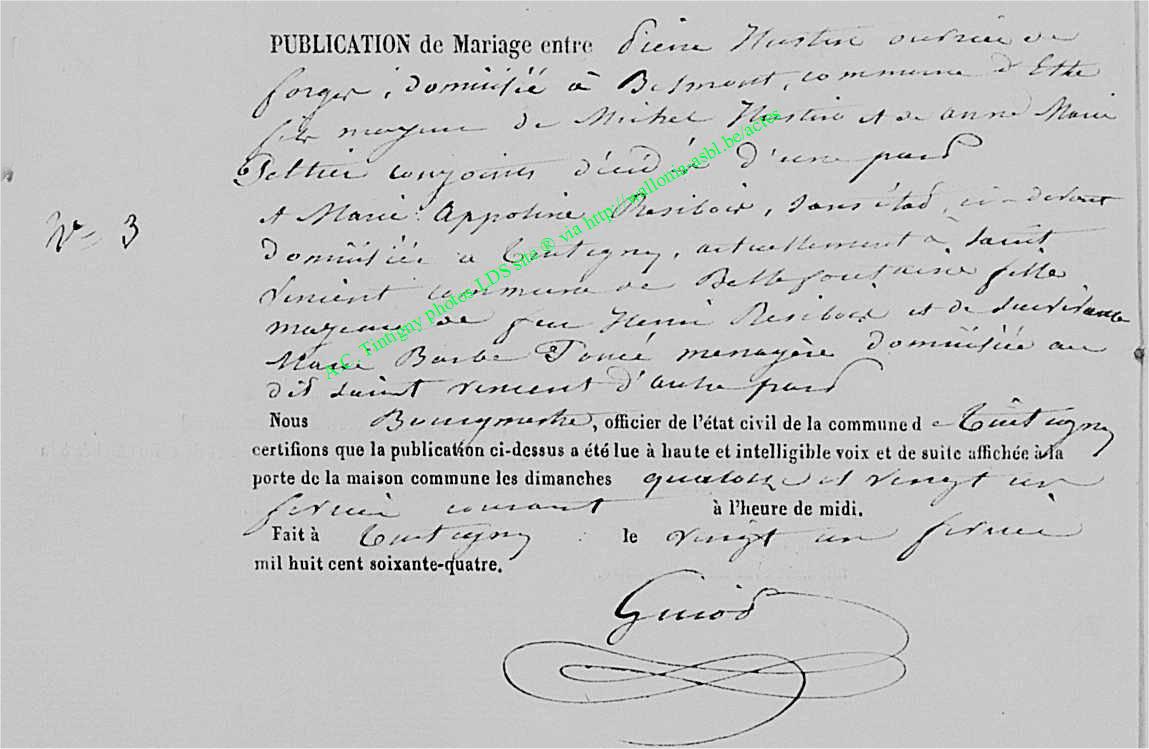 PUBLICATION de Mariage entre Pierre Hustin ouvrier de
forges, domicilié à Belmont, commune d'Ethe
fils majeur de Michel Hustin et de anne Marie
Peltier conjoints décédés d'une part
N° 3
et Marie Appoline Resibois, sans état, ci-devant
domiciliée à Tintigny, actuellement à Saint
Vincent commune de Bellefontaine fille
majeure de feu Henri Resibois et de survivante
Marie Barbe Poncé menagère domiciliée au
dit saint vincent d'autre part
Nous Bourgmestre, officier de l'état civil de la commune de Tintigny
certifions que la publication ci-dessus a été lue à haute et intelligible voix et de suite affichée à la
porte de la maison commune les dimanches quatorze et vingt un
février courant à l'heure de midi.
Fait à Tintigny le vingt un février
mil huit cent soixante-quatre.
A.C. Tintigny photos LDS site ® via http://wallonia-asbl.be/actes